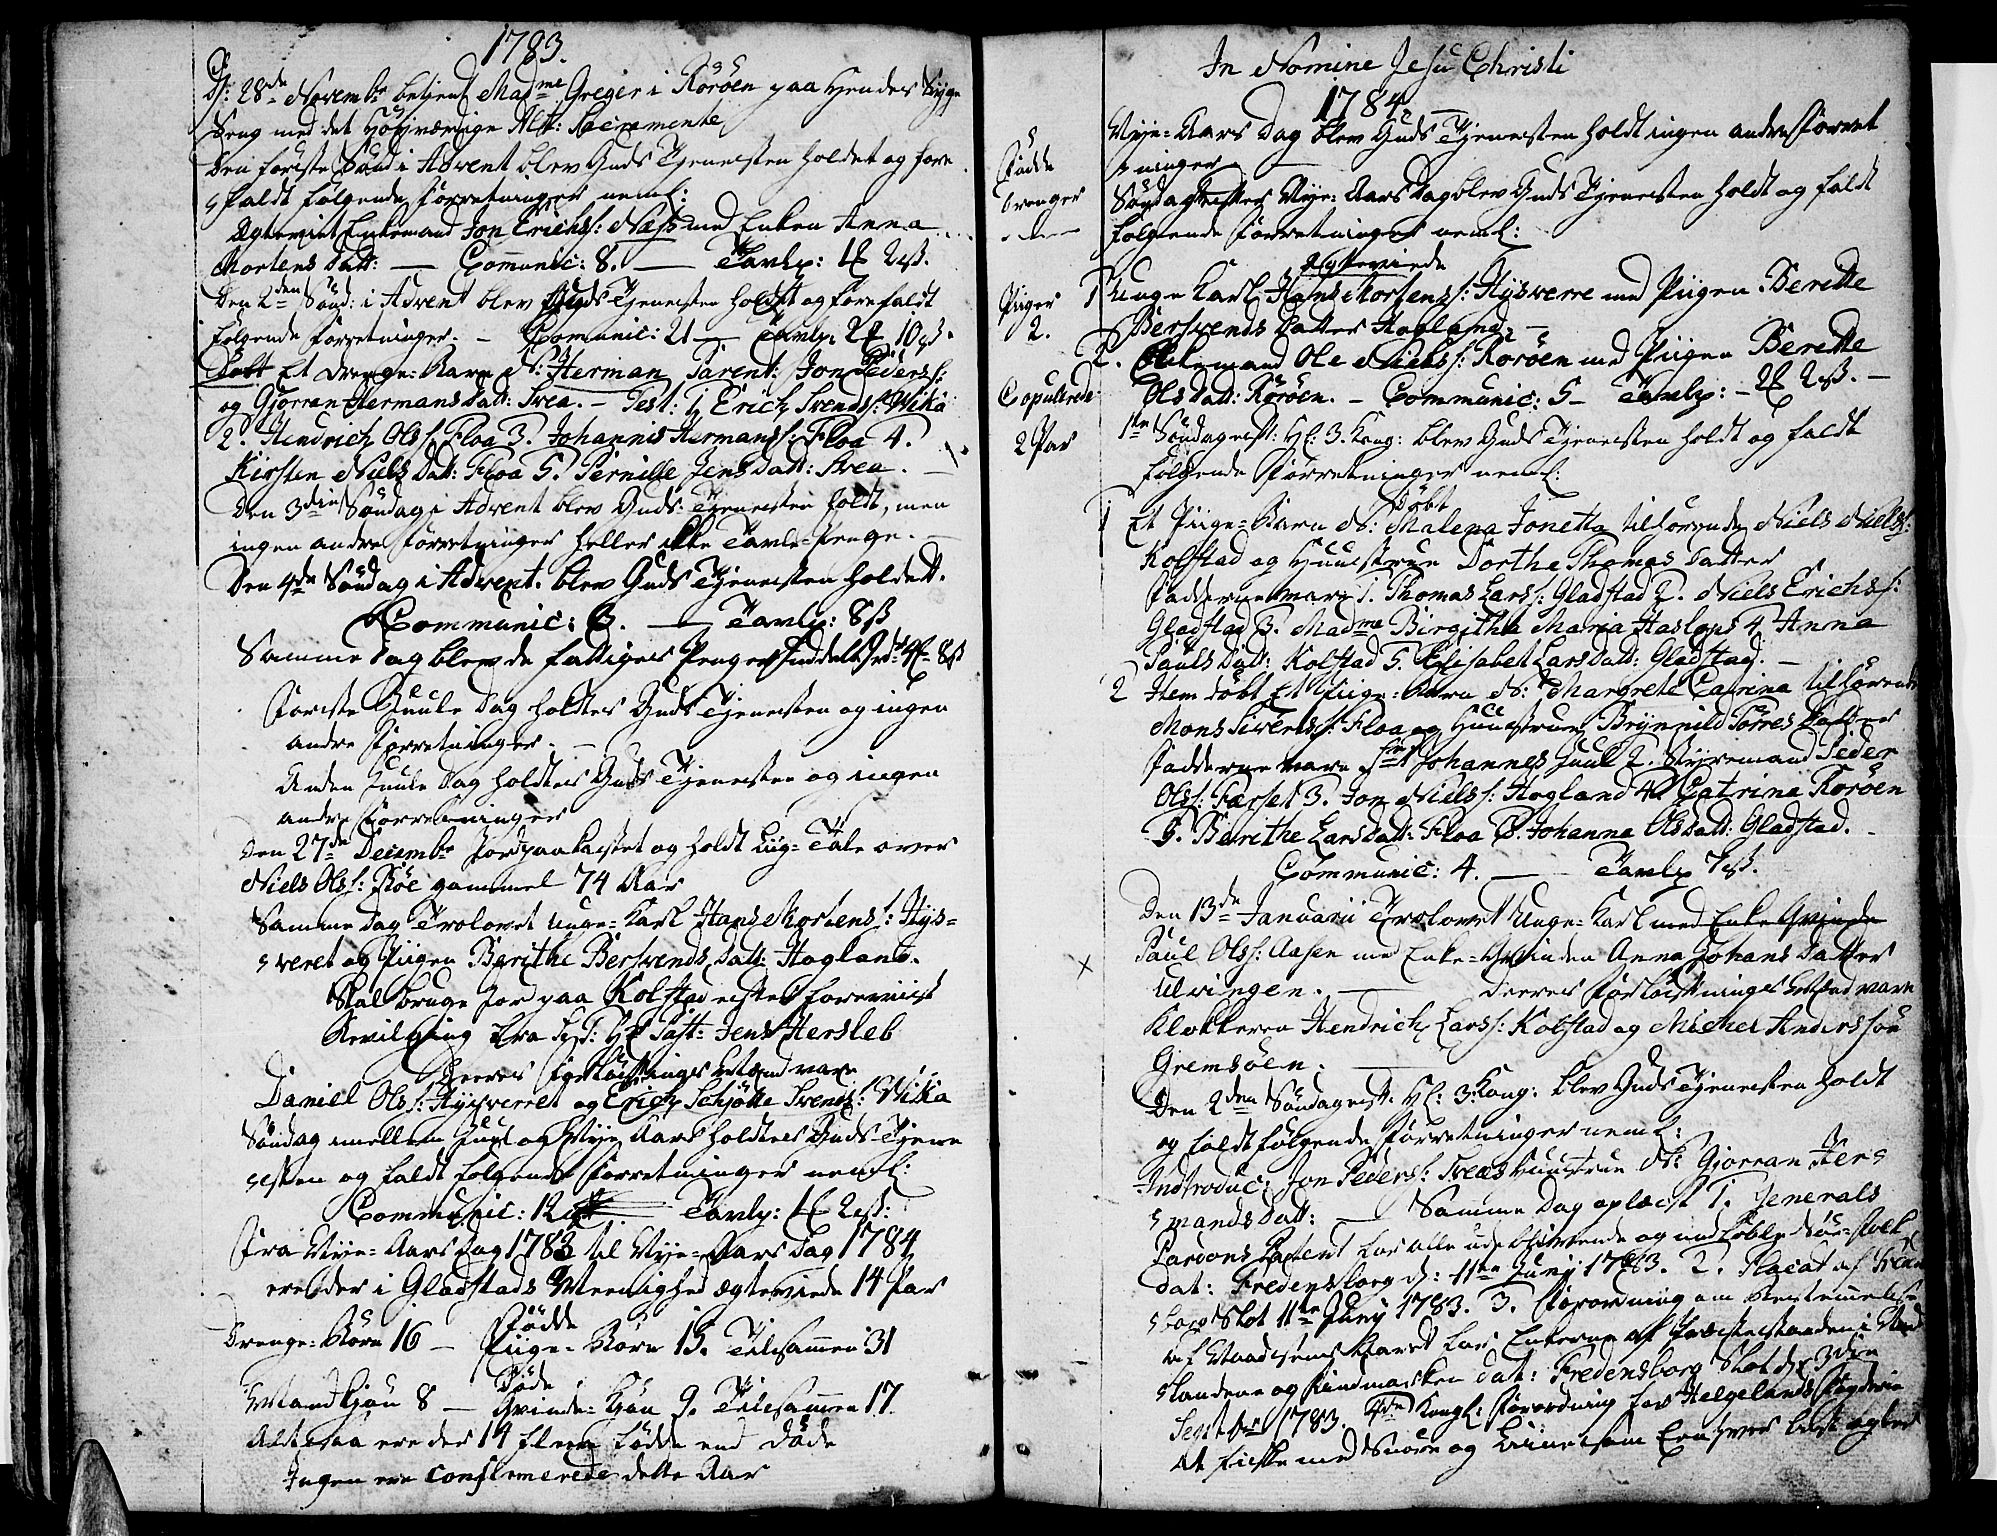 1783.
D: 28de Novembr betient Madme Greger i Rørøen paa Hendes Syge
Seng med det Høyværdige Alt: Sacramente
Den første Sønd: i Advent blev Guds Tjenesten holdet og fore
faldt følgende Forretninger neml:
Ægteviet Enkemand Jon Erichs: Næss med Enken Anna
Mortens Datt: — Communic: 8. — Tavlp:
Den 2den Sønd: i Advent blev Guds Tjenesten holdt og forefaldt
følgende Forretninger. — Communic: 21 — Tavlp:
Døbt Et Drenge-Barn N: Herman Parent: Jon Peders:
og Gjørran Hermans Datt: Svea. — Test: 1 Erich Svends: Wika
2. Hendrich Ols: Floa 3. Johannis Hermans: Floa 4.
Kirsten Niels Datt: Floa 5. Pernille Jens Datt: Svea. —
Den 3die Søndag i Advent blev Guds Tjenesten holdt, men
ingen andre Forretninger heller ikke Tavle-Penge. —
Den 4de Søndag i Advent blev Guds Tjenesten holdet.
Communic: 6. — Tavlp: 8ß
Samme Dag blev de fattiges Penger
Første Juule Dag holdtes Guds Tjenesten og ingen
andre Forretninger. —
Anden Juule Dag holdtes Guds Tjenesten og ingen
andre Forretninger
Den 27de Decembr Jordpaakastet og holdt Liig-Tale over
Niels Ols: Bøe gammel 74 Aar
Samme Dag Trolovet unge-Karl Hans Mortens: Hys-
veret og Piigen Berithe Bersvends Datt: Hogland.
Skal bruge Jord paa Kolstad efter forevist
Bevilgning fra Past: Jens Hersleb
Deeres Forløftnings Mænd vare
Daniel Ols: Hysverret og Erich Schjøtte Svends: Wika
Søndag imellem Juul og Nye Aar holdtes Guds Tjene
esten og faldt følgende Forretninger neml:
Communic: 12 Tavlp:
Fra Nye-Aars Dag 1783 til Nye-Aars Dag 1784
ere der i Gladstads Meenighed ægteviede 14 Par
Fødde
Drenge-Børn 16 — Piige-Børn 15. Tilsammen 31
Døde
Mandkjøn 8 — Qvinde-Kjøn 9. Tilsammen 17.
Altsaa ere der 14 fleere fødde end Døde
Ingen ere confirmerede dette Aar
In Nomine Jesu Christi
1784
Nye-Aars Dag blev Guds Tjenesten holdt ingen andre Forret
ninger. —
Fødde
Drenger
Søndag efter Nye-Aars Dag blev Guds Tjenesten holdt og faldt
følgende Forretninger neml:
Ægteviede
Piiger
2.
1 Unge Karl Hans Mortens: Hysverre med Piigen Berette
Bersvends Datter Hogland. —
2. Enkemand Ole Niels: Rørøen med Piigen Berette
Ols Datt: Rørøen. — Communic: 5 — Tavlp:
Copulerede
2 Par
1te Søndag eft: H: 3. Kong: blev Guds Tjenesten holdt og faldt
følgende Forretninger neml:
Døbt
1 Et Piige-Barn N: Malena Jonetta tilhørende Niels Niels:
Kolstad og Huustrue Dorthe Thomas Datter
Fadderne vare 1. Thomas Lars: Gladstad 2. Niels Erichs:
Gladstad 3. Madme Birgitha Maria Haslops 4 Anna
Pauls Datt: Kolstad 5. Elisabet Lars Datt: Gladstad. —
2 Item døbt Et Piige-Barn N: Margrete Catrina tilhørende
Mons Siverts: Floa og Huustrue Brynnild Torres Datter
Fadderne vare Johannes Juul 2. Styremand Peder
Ols: Farset 3. Jon Niels: Hogland 4. Catrina Rørøen
5. Berithe Lars Datt: Floa 6. Johanna Ols Datt: Gladstad. —
Communic: 4. — Tavlp 7ß.
Den 13de Januarii Trolovet Unge-Karl med Enke Qvinde
Paul Ols: Aasen med Enke-Qvinden Anna Johans Datter
Ulvingen. — Deeres Forløftnings Mænd vare
Klokkeren Hendrich Lars: Kolstad og Michel Anderssøn
Gremsøen: —
Den 2den Søndag eft. H: 3 Kong: blev Guds Tjenesten holdt
og faldt følgende Forretninger neml:
Introduc: Jon Peders: Sveas Huustrue N: Gjørran Her
mands Datt: — Samme Dag oplæst 1. Generals
Pardons Patent for alle udeblivende og undløbne Søe-Folk
dat: Fredensborg d: 11te Junj 1783. 2. Placat af Freden
sborg Slot 11te Junj 1783. 3. Forordning om
af Naadsens Aaret for Enkerne af Præstestanden i
landene og Findmarken dat: Fredensborg Slot d: 3die
Septbr 1783. 4de Kongl: Forordning for Helgelands Fogderie
at fiske med Snøre og Liine som Enhver best agter